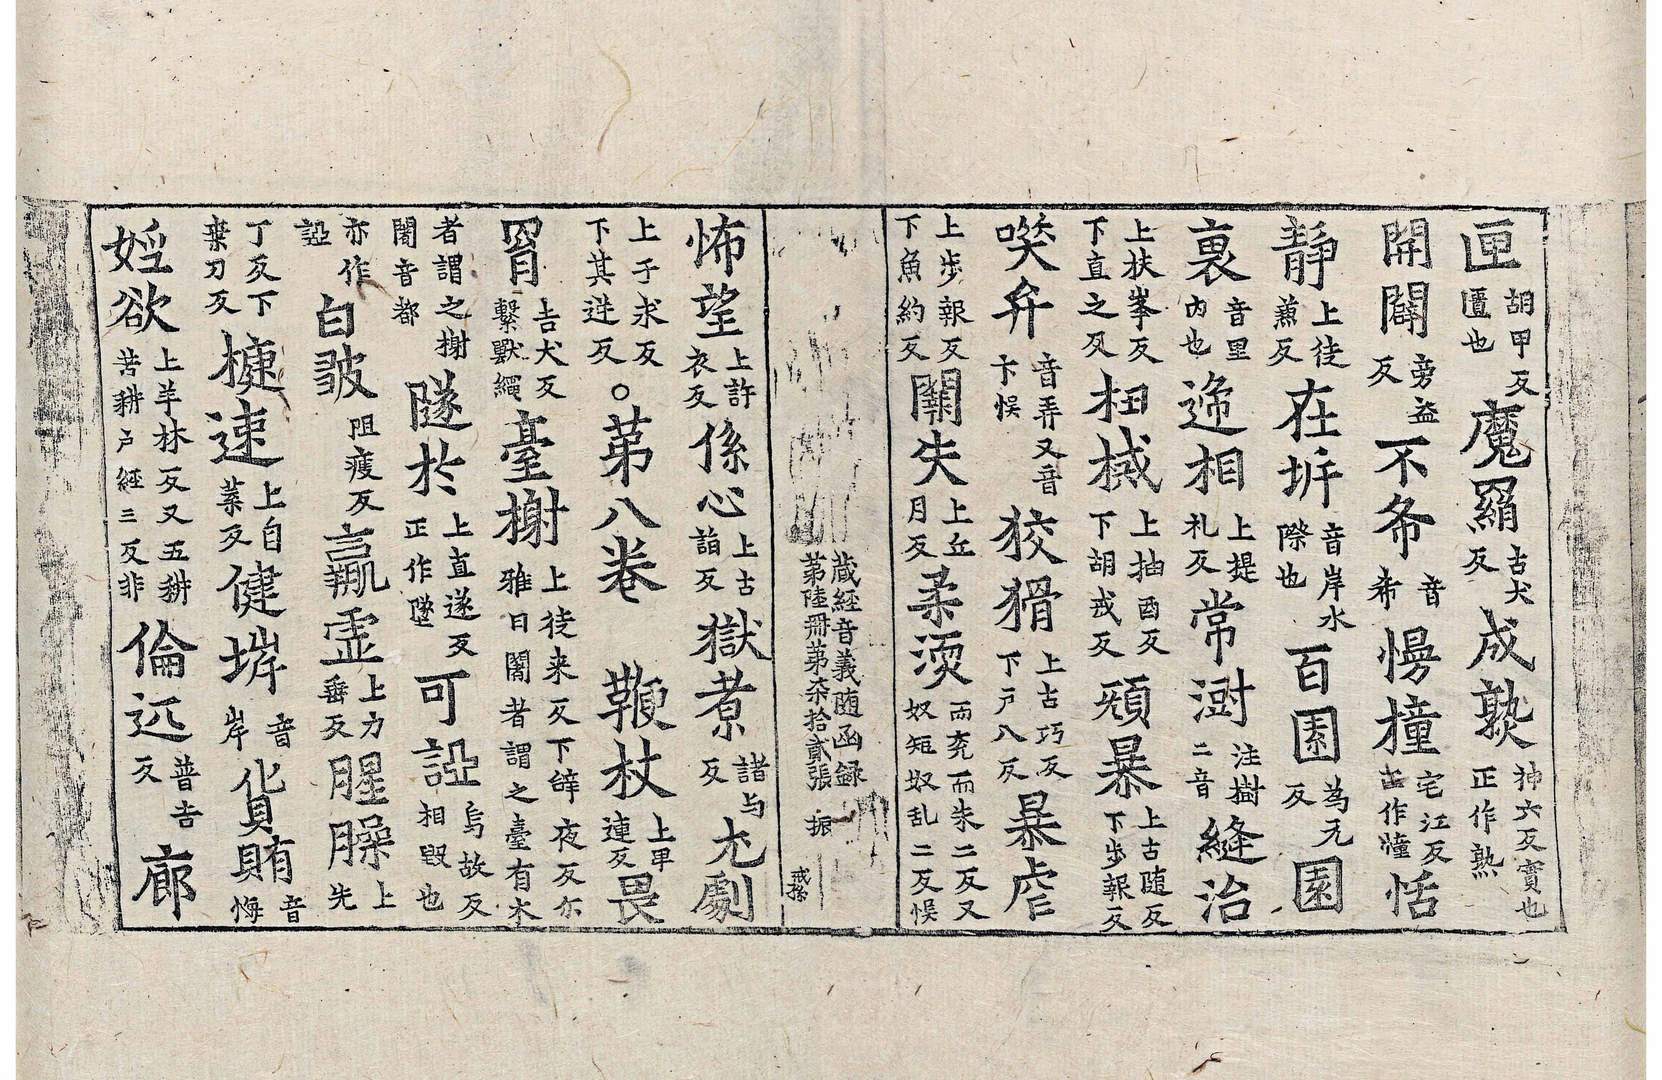 匣胡甲反匱也魔羂古犬反成𤍨神六反實也正作熟
開闢旁益反不希音希慢撞宅江反古作憧恬
静上徒蕪反在㘁音岸水際也百園為元反園
裏音里內也遞相上提礼反常澍注樹二音縫治
上扶峯反下直之反杻械上抽酉反下胡戒反頑暴上古随反下步報反
哭弁音弄又音卞悮狡猾上古巧反下户八反暴虐
上步報反下魚約反闕失上丘月反柔渜而兖而朱二反又奴矩奴乱二反悮
蔵經音義随函録第陸冊第柒拾貳張 振
戒孫
怖望上許衣反係心上古詣反獄煮諸与反尤劇
上于求反下其逆反○第八卷 鞭杖上卑連反畏
罥古犬反繫獸繩臺榭上徒来反下辝夜反尓雅曰闍者謂之臺有木
者謂之榭闍音都隧於上直遂反正作墜可䛩烏故反相毀也
亦作䛩白皷阻瘦反羸虚上力垂反腥臊上先
丁反下桒刀反揵速上自葉反健㘁音岸貨賄音悔
婬欲上羊林反又五耕苦耕户經三反非倫远普吉反廊